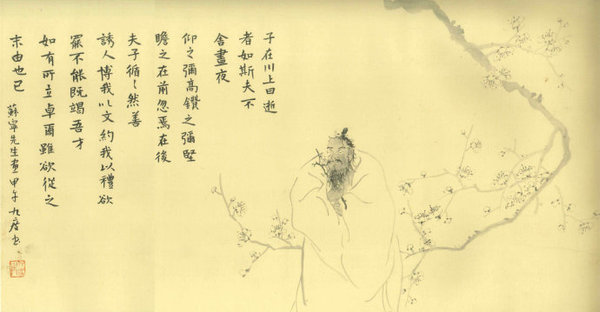 子在川上曰逝
者如斯夫不
舍晝夜
仰之彌高鑽之彌堅
瞻之在前忽焉在後
夫子循〻然善
誘人博我以文約我以禮欲
罷不能既竭吾才
如有所立卓爾雖欲從之
末由也已
蘇寧先生畫甲午九度書